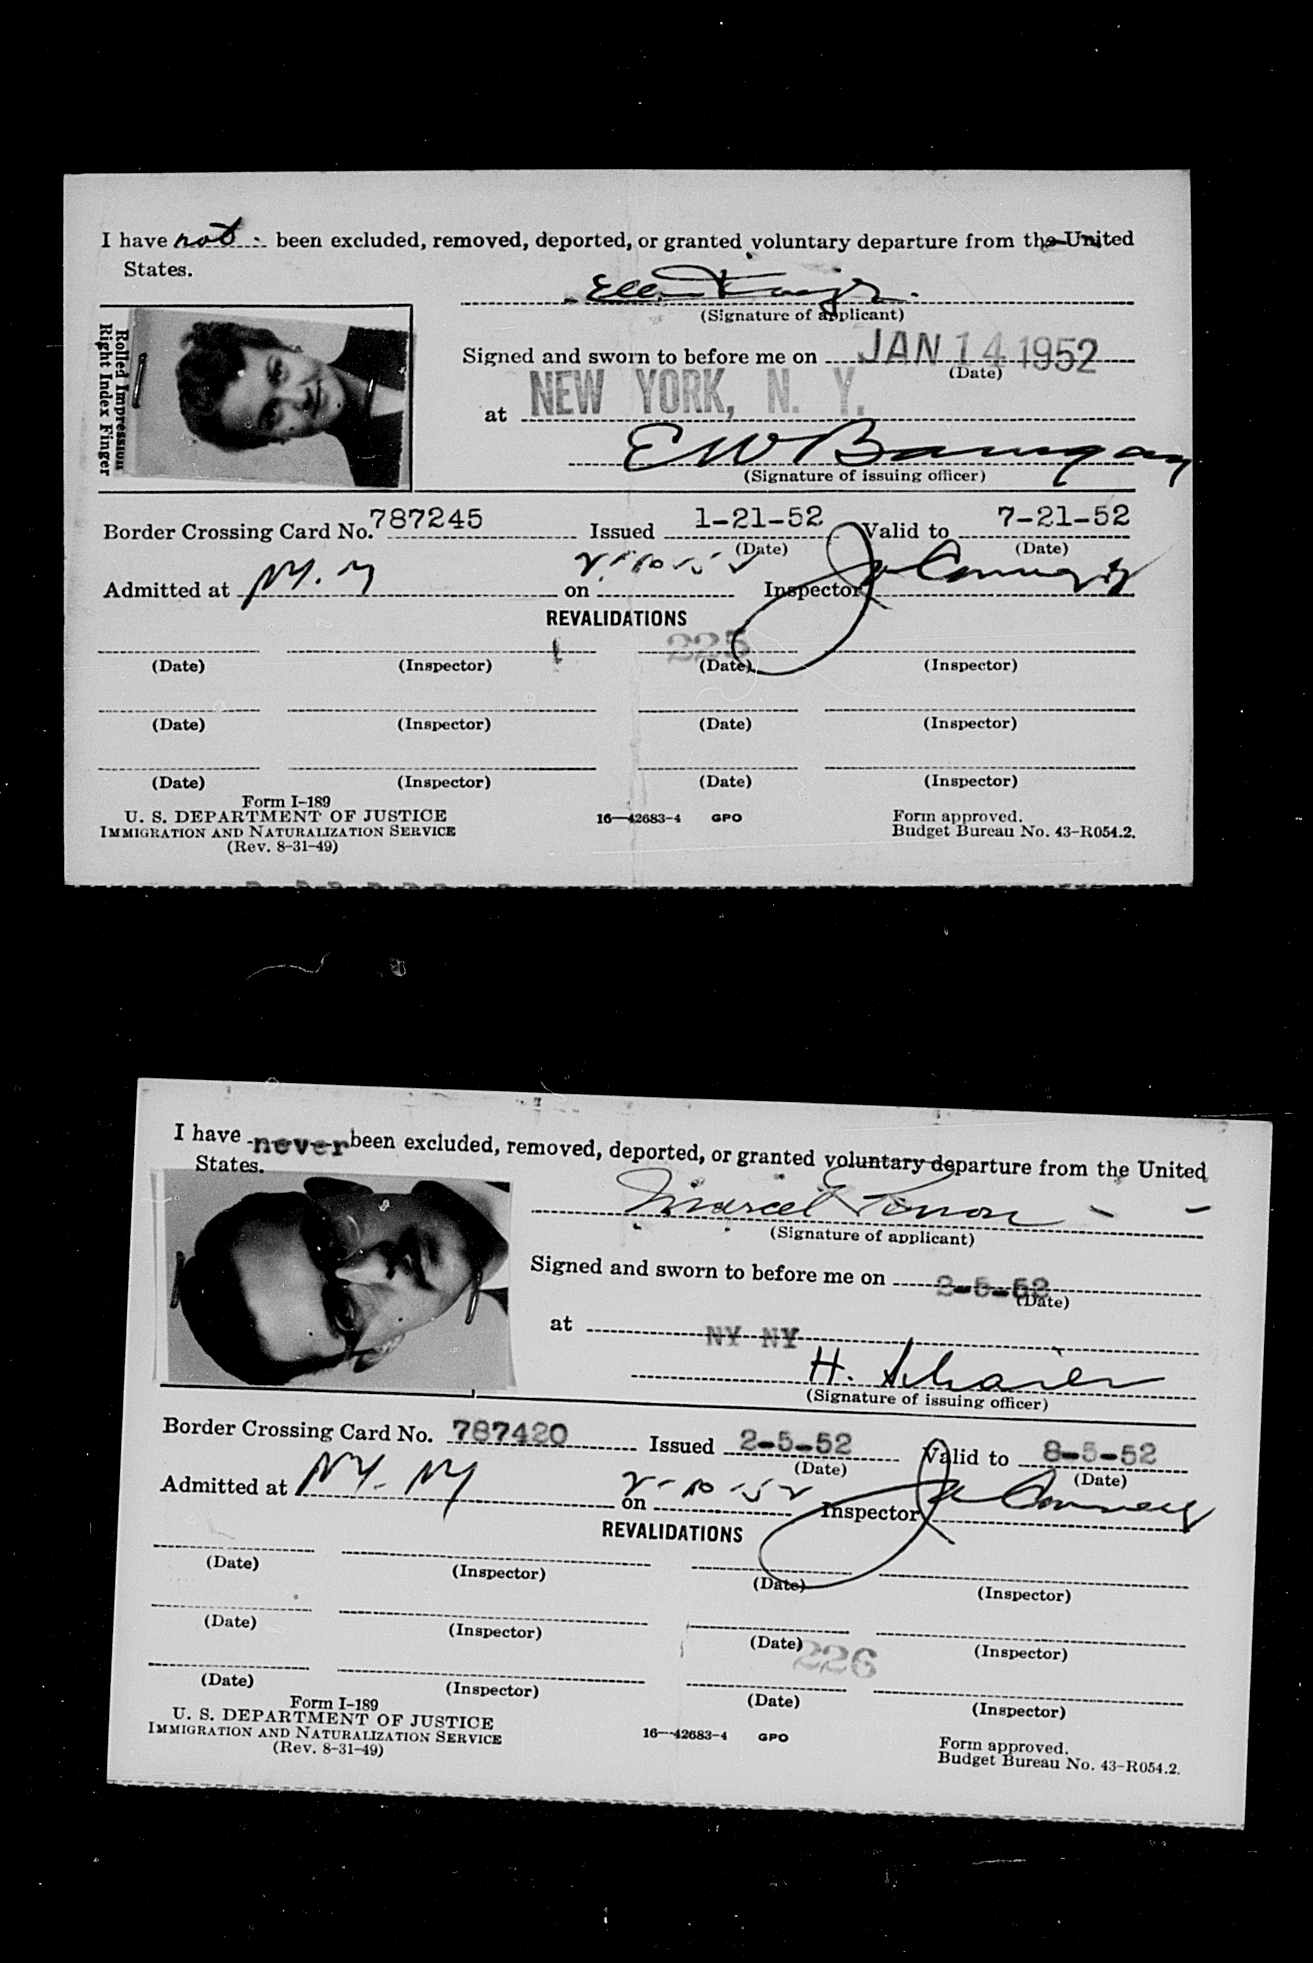 I have not been excluded, removed, deported, or granted voluntary departure from the United
States.
(Signature of applicant)
Rolled Impression
Right Index Finger
Signed and sworn to before me on JAN 14 1952
(Date)
at NEW YORK, N. Y.
E W
(Signature of issuing officer)
Border Crossing Card No. 787245 Issued 1-21-52 Valid to 7-21-52
(Date) (Date)
Admitted at N.Y on 2-10-52 Inspector
REVALIDATIONS
225
(Date) (Inspector) (Date) (Inspector)
(Date) (Inspector) (Date) (Inspector)
(Date) (Inspector) (Date) (Inspector)
Form I-189
U. S. DEPARTMENT OF JUSTICE
IMMIGRATION AND NATURALIZATION SERVICE
(Rev. 8-31-49)
16—42683-4 GPO
Form approved.
Budget Bureau No. 43-R054.2.
I have never been excluded, removed, deported, or granted voluntary departure from the United
States.
Marcel
(Signature of applicant)
Signed and sworn to before me on 2-5-52
(Date)
at NY NY
H.
(Signature of issuing officer)
Border Crossing Card No. 787420 Issued 2-5-52 Valid to 8-5-52
(Date) (Date)
Admitted at NY. NY on 2-10-52 Inspector
REVALIDATIONS
(Date) (Inspector) (Date) (Inspector)
(Date) (Inspector) (Date) (Inspector)
226
(Date) (Inspector) (Date) (Inspector)
Form I-189
U. S. DEPARTMENT OF JUSTICE
IMMIGRATION AND NATURALIZATION SERVICE
(Rev. 8-31-49)
16—42683-4 GPO
Form approved.
Budget Bureau No. 43-R054.2.